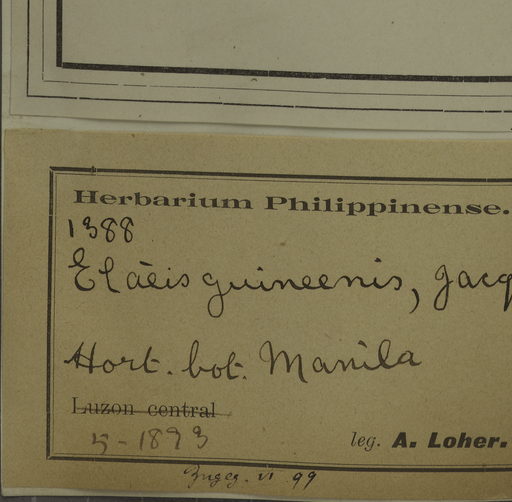 Herbarium Philippinense.
1388
Elaëis guineenis, Jacq
Hort. bot. Manila
Luzon central
5-1893
leg. A. Loher.
Zugeg. VI 99